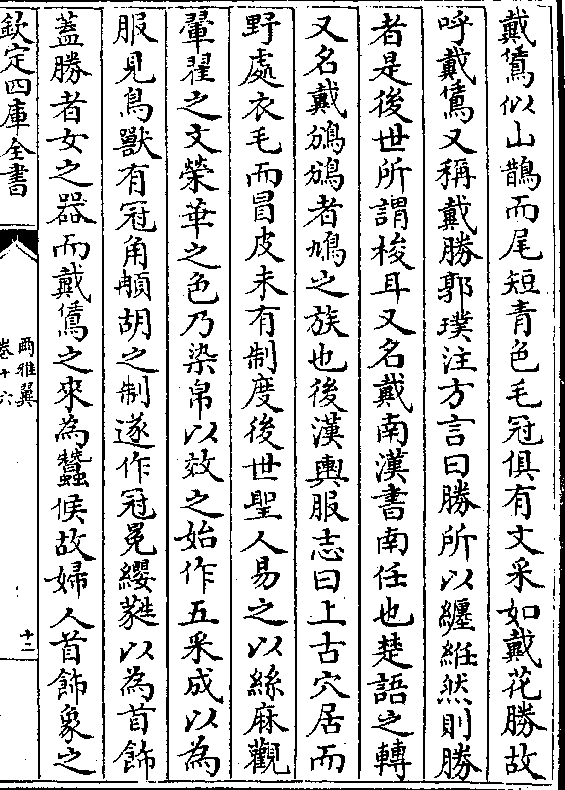 戴鵀似山鵲而尾短青色毛冠俱有文采如戴花勝故
呼戴鵀又稱戴勝郭璞注方言曰勝所以纏絍然則勝
者是後世所謂梭耳又名戴南漢書南任也楚語之轉
又名戴鳻鳻者鳩之族也後漢輿服志曰上古穴居而
野處衣毛而冒皮未有制度後世聖人易之以絲麻觀
翬翟之文榮華之色乃染帛以效之始作五采成以為
服見鳥獸有冠角䫇胡之制遂作冠冕纓蕤以為首飾
蓋勝者女之器而戴鵀之來為蠶候故婦人首飾象之
欽定四庫全書
爾雅翼
卷十六
十二